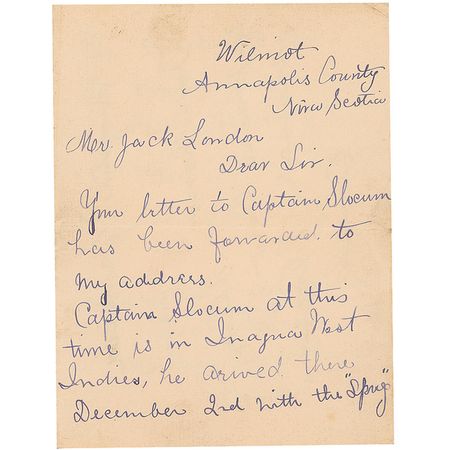 Wilmot
Annapolis County
Nova Scotia
Mr. Jack London
Dear Sir.
Your letter to Captain Slocum
has been forwarded to
my address.
Captain Slocum at this
time is in Inagua West
Indies, he arived there
December 2nd with the "Spray"